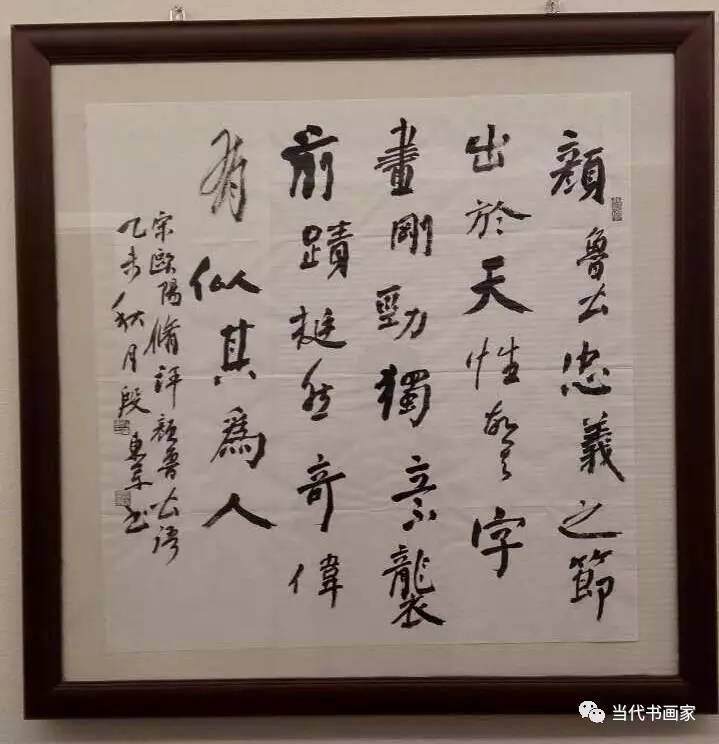 顏魯公忠義之節
出於天性故其字
畫剛勁獨立不襲
前蹟挺然奇偉
有似其為人
宋歐陽脩評顏魯公語
乙未秋月段书
当代书画家